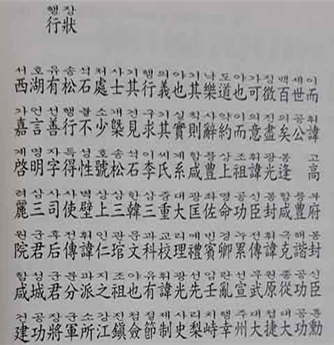 행장
行狀
서호유송석처사기행의야기낙도야가징백세이
西湖有松石處士其行義也其樂道也可徵百世而
가언선행불소개견구기실즉사약이의진의공휘
嘉言善行不少槩見求其實則辭約而意盡矣公諱
계명자득성호송석이씨계함풍상조휘광봉 고
啓明字得性號松石李氏系咸豊上祖諱光逢 高
려삼사사벽상삼한삼중대광좌명공신봉함풍부
麗三司使壁上三韓三重大匡佐命功臣封咸豊府
원군후전휘인관문과교리예빈경누전휘극해봉
院君后傳諱仁琯文科校理禮賓卿累傳諱克諧封
함성군분파지조야유휘광선임란선무원종공신
咸城君分派之祖也有諱光先壬亂宣武原從功臣
건공장군소강진첨절제사리치행주대첩대공
建功將軍所江鎭僉節制史梨峙幸州大捷大功